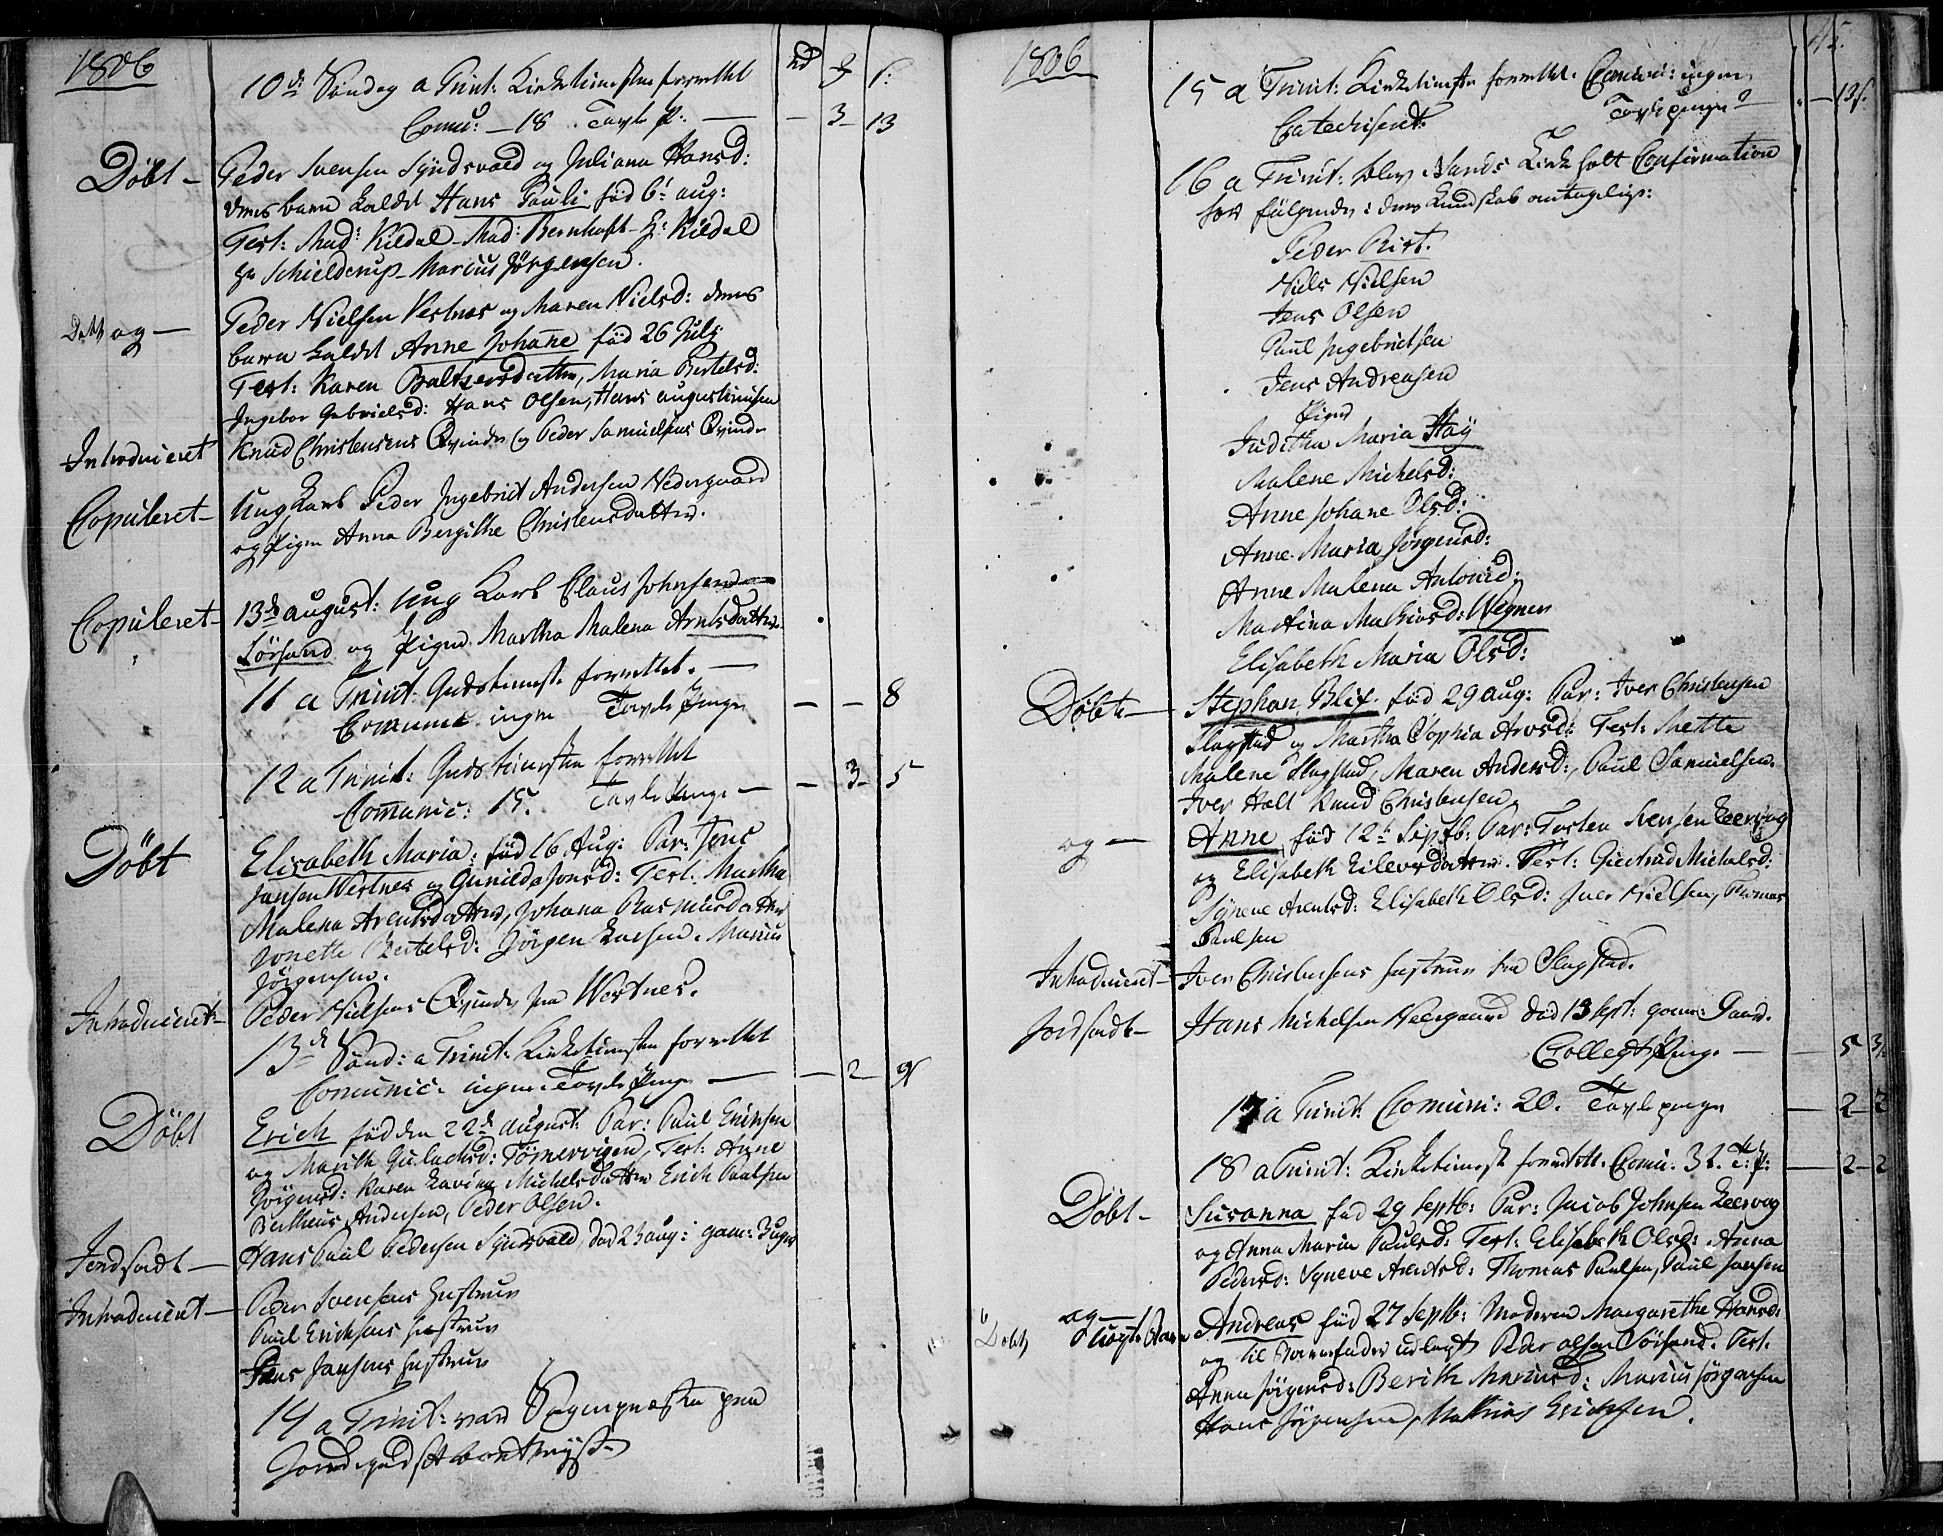 1806
10de Søndag a Trint: Kirketienesten forrettet
Comu: – 18 Tavle P. — – 3 – 13
Døbt – Peder Svensen Syndsvald og Juliana Hansd:
deres barn kaldet Hans Pauli fød 6t aug:
Test: Mad: Kildal – Mad: Bernhoft – Hr: Kildal
Hr Schielderup – Marcus Jørgensen.
og – Peder Nielsen Vestnes og Maren Nielsd: deres
barn kaldet Anne Johane fød 26 July
Test: Karen Baltzersdatter, Maria Bertelsd:
Ingebor Gabrielsd: Hans Olsen, Hans Augustinusen
Introduceret Knud Christensens Qvinde og Peder Samuelsens Qvinde
Copuleret – Ung Karl Peder Ingebrict Andersen Nedergaard
og Pigen Anna Bergithe Christensdatter.
Copuleret – 13de august: Ung Karl Claus Johnsen
Sørsand og Pigen Martha Malena Arntsdatter.
11 a Trint: Gudstienest forrettet. —
Comunic ingen Tavle Penge – – 8
12 a Trinit: Gudstienesten forrettet
Comunic: 15. Tavle Penge — – 3 – 5
Døbt Elisabeth Maria: fød 16 Aug: Par: Jens
Jansen Westnes og Gunilda Jonsd: Test: Martha
Malena Arentsdatter, Johana Rasmusdatter
Jonette Bertelsd: Jørgen Larsen. Marcus
Jørgensen.
Introduceret – Peder Nielsens Qvinde fra Westnes.
13de Sønd: a Trinit: Kirketienesten forrettet
Comunic: ingen. Tavle Penge — – 2 – 9
Døbt Erich fød den 22de august: Par: Paul Erichsen
og Marith Gulachsd: Tømmervigen, Test: Anne
Jørgensd: Karen Lavina Michelsdatter Erich Paulsen
Bertheus Andersen, Peder Olsen.
Jordfæstet — Hans Paul Pedersen Syndsvald, død 23 aug: gam: 3 uger
Introduceret — Peder Svensens Hustrue
Paul Erichsens Hustrue
Jens Jansens Hustrue
14 a Trinit: var Sognepræsten paa
1806
45.
15 a Trinit: Kirketienesten forrettet. Comuni: ingen
Catechiseret. Tavle penge — – 13 s.
16 a Trinit: blev i Sands Kirke holt Confirmation
for følgende: deres Kundskab antagelige:
Peder Rist.
Niels Nielsen
Jens Olsen
Paul Ingebrictsen
Jens Andreasen
Piger
Juditha Maria Høy
Malene Michelsd:
Anne Johane Olsd:
Anne Maria Jørgensd:
Anne Malena Antonid:
Martina Mathiasd: Wegner
Elisabeth Maria Olsd:
Døbte — Stephan Blix fød 29 aug: Par: Iver Christensen
Slagstad og Martha Sophia Arosd: Test: Mette
Malene Slagstad, Maren Andersd:, Paul Samuelsen.
Iver Holt Knud Christensen
og — Anne fød 12te Septb: Par: Torsten Stensen Leervog
og Elisabeth Eilersdatter. Test: Giertrud Michalsd:
Synene Arentsd: Elisabeth Olsd: Iver Nielsen, Thomas
Paulsen
Introduceret – Iver Christensens Hustrue fra Slagstad.
Jordfæstet – Hans Michelsen Neergaard død 13 Sept: gam: 9 aar.
Collect Penge — – 5 3
17 a Trinit: Comuni: 20. Tavle penge — 2 – 2
18 a Trinit: Kirketienest forrettet. Comu. 32. T: P: — 2 – 2
Døbt – Susanna fød 29 Septb: Par: Jacob Johnsen Leervog
og Anna Maria Paulsd: Test: Elisabeth Olsd: Anna
Pedersd: Syneve Arentsd: Thomas Paulsen, Paul Jansen
og —
Døbt Uægte Barn Andreas fød 27 Septb: Moderen Margarethe Hansd:
og til Barnefader udlagt Peder Olsen Sørsand. Test.
Anna Jørgensd: Berith Marcusd: Marcus Jørgensen
Hans Jørgensen, Mathias Erichsen.